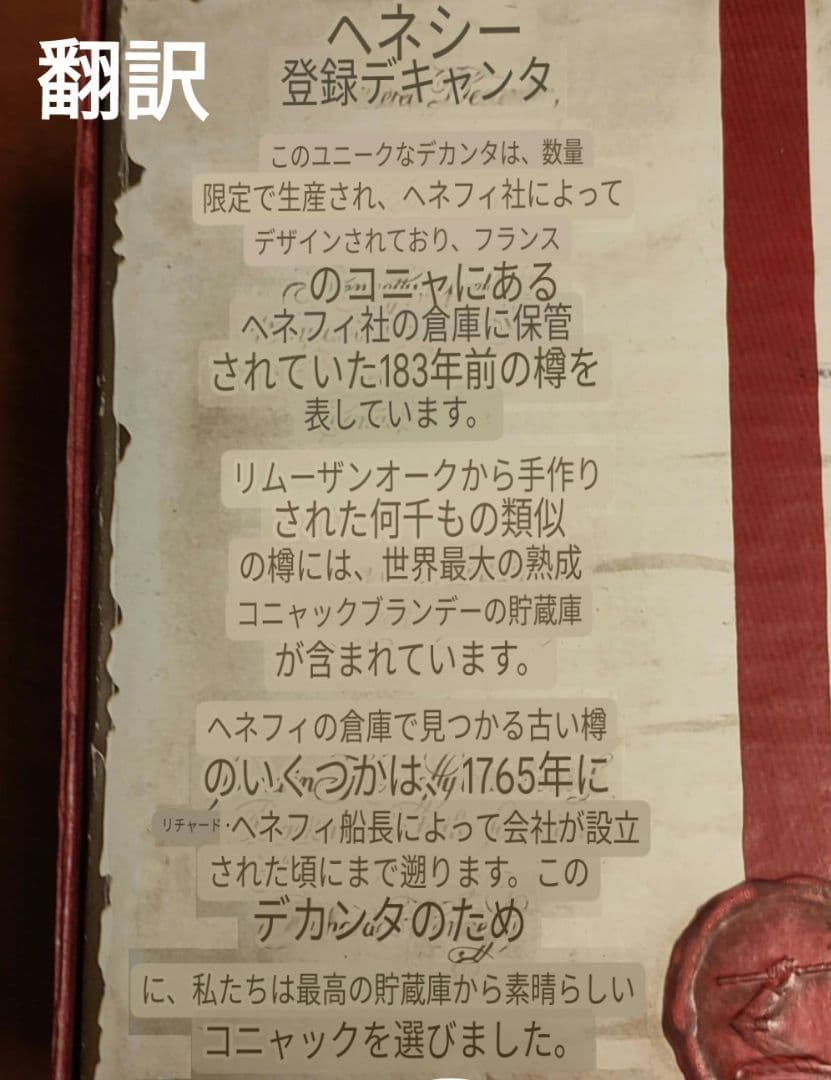 翻訳
ヘネシー
登録デキャンタ
このユニークなデカンタは、数量
限定で生産され、ヘネフィ社によって
デザインされており、フランス
のコニャにある
ヘネフィ社の倉庫に保管
されていた183年前の樽を
表しています。
リムーザンオークから手作り
された何千もの類似
の樽には、世界最大の熟成
コニャックブランデーの貯蔵庫
が含まれています。
ヘネフィの倉庫で見つかる古い樽
のいくつかは、1765年に
リチャード・ヘネフィ船長によって会社が設立
された頃にまで遡ります。この
デカンタのため
に、私たちは最高の貯蔵庫から素晴らしい
コニャックを選びました。